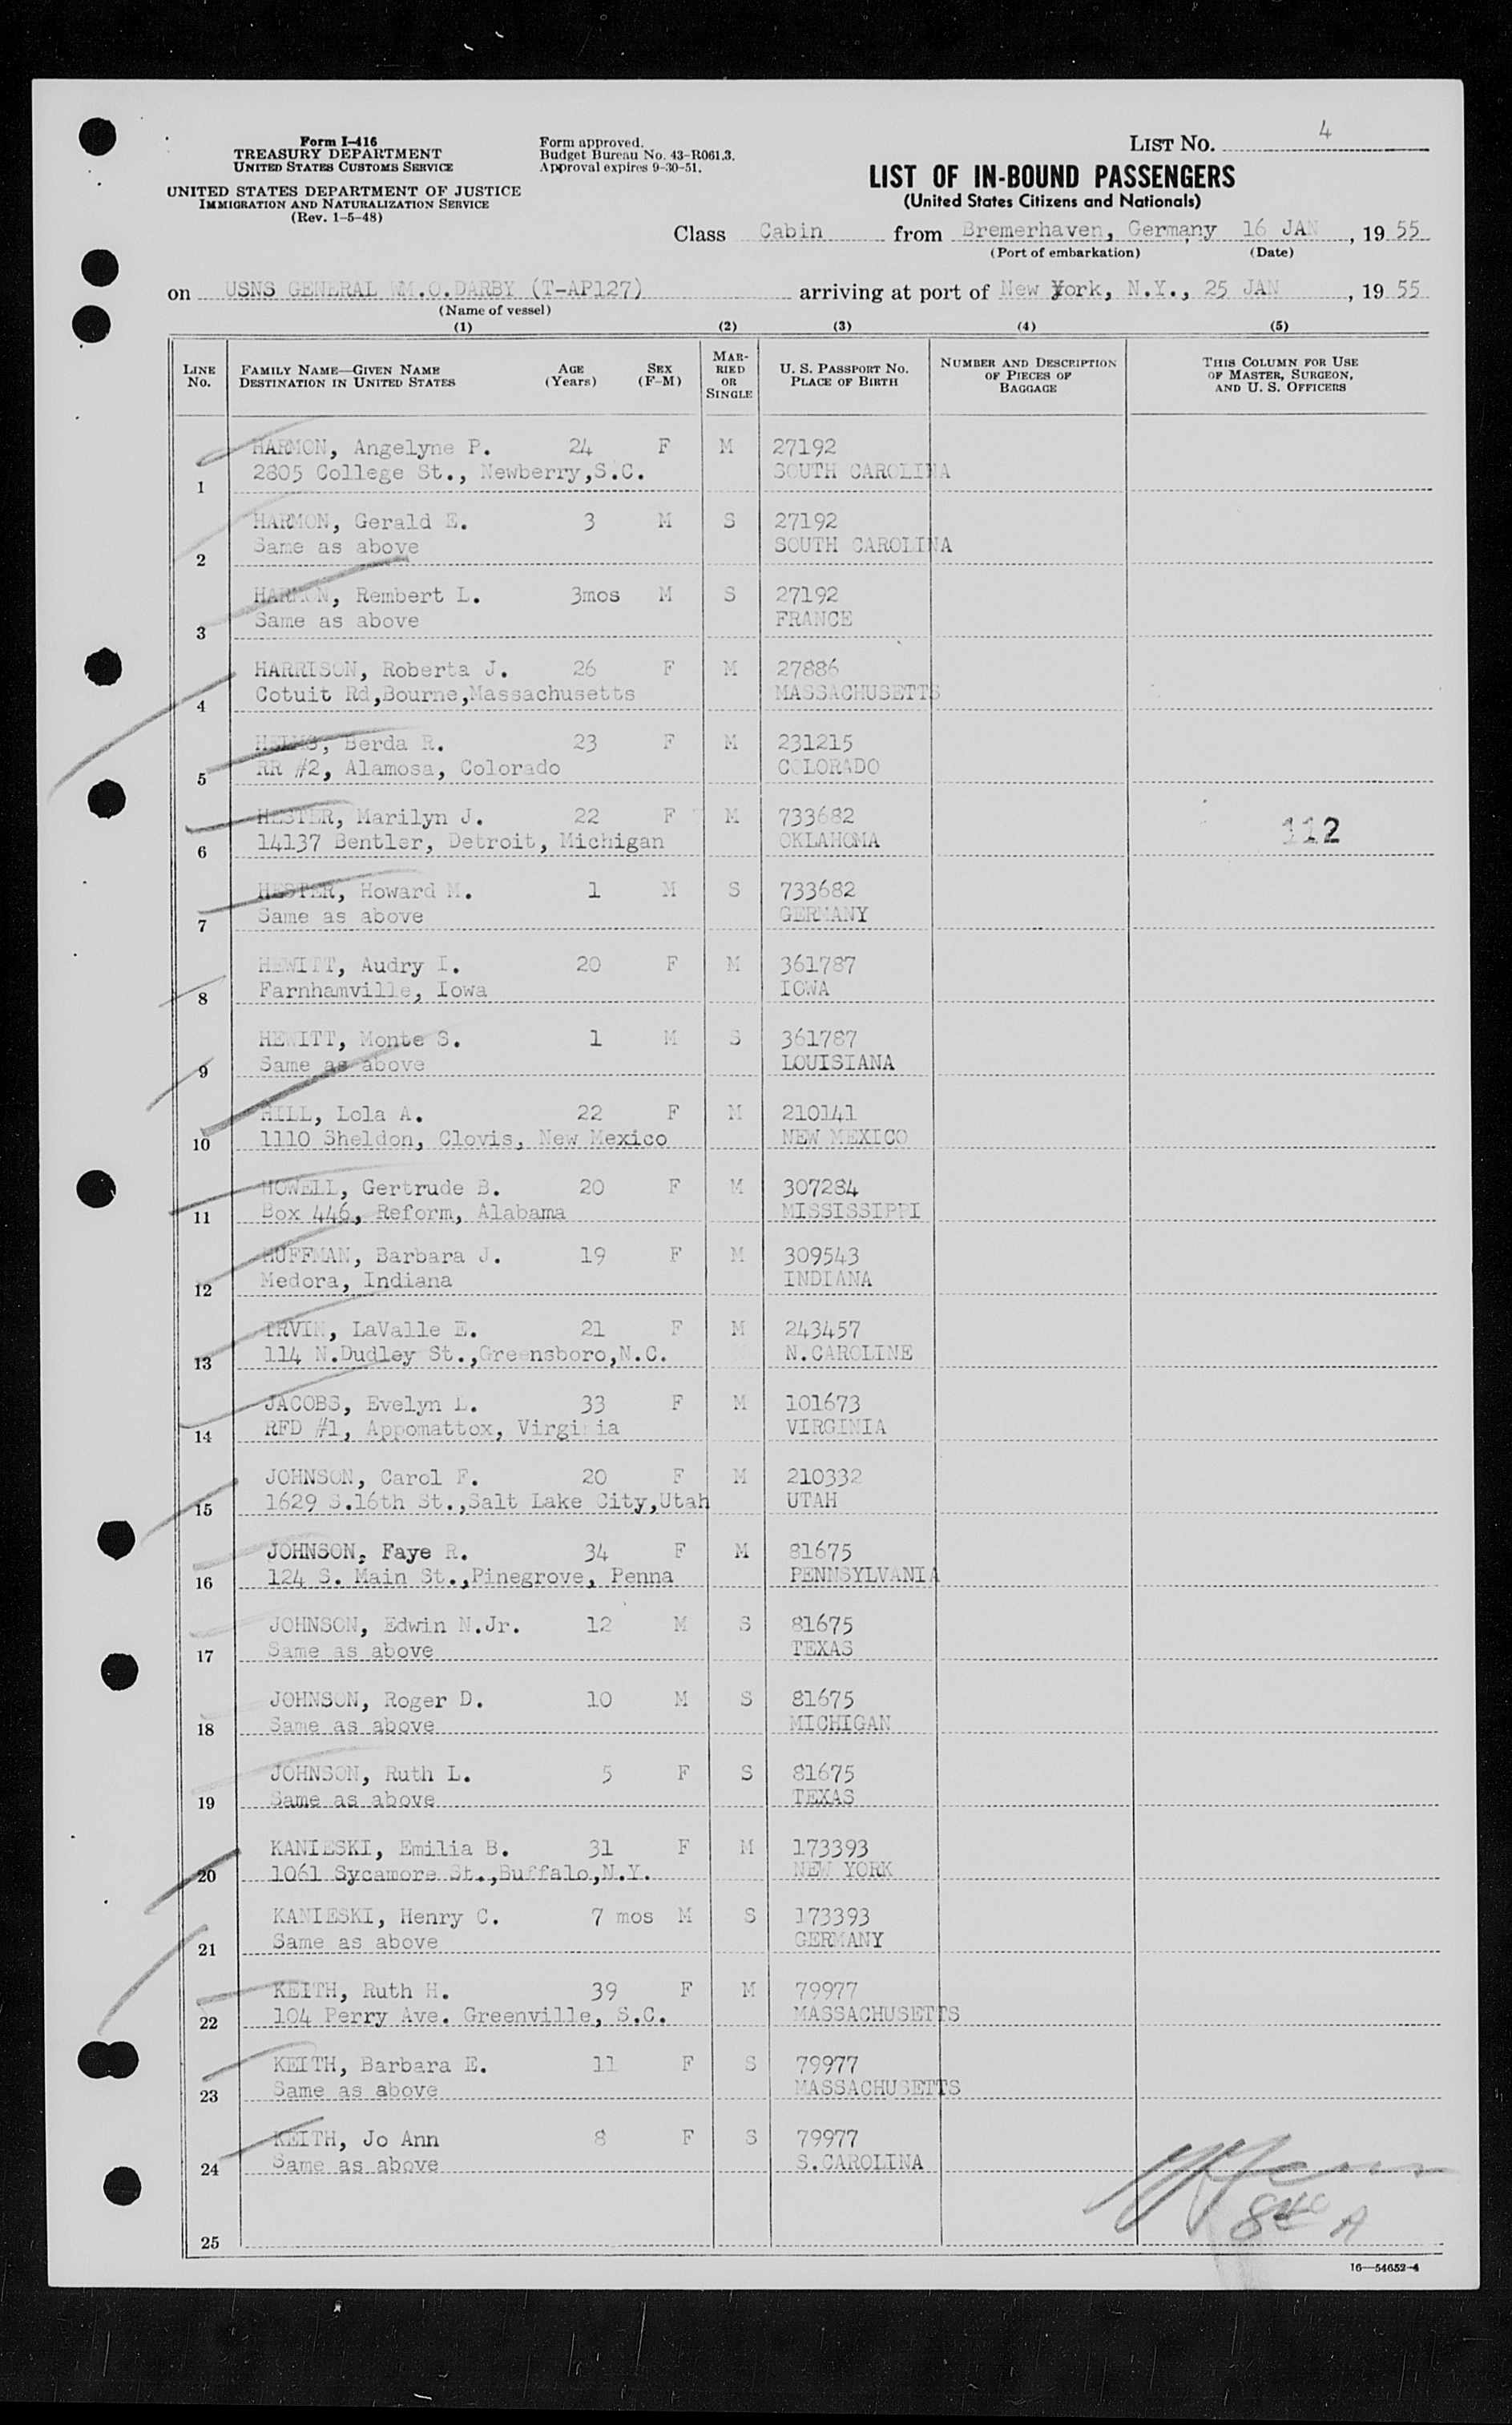 Form I-416
TREASURY DEPARTMENT
UNITED STATES CUSTOMS SERVICE
UNITED STATES DEPARTMENT OF JUSTICE
IMMIGRATION AND NATURALIZATION SERVICE
(Rev. 1-5-48)
Form approved.
Budget Bureau No. 43-R061.3.
Approval expires 9-30-51.
LIST NO. 4
LIST OF IN-BOUND PASSENGERS
(United States Citizens and Nationals)
Class Cabin from Bremerhaven, Germany 16 JAN, 1955
(Port of embarkation) (Date)
on USNS GENERAL WM.O.DARBY (T-AP127) arriving at port of New York, N.Y., 25 JAN, 1955
(Name of vessel)
(1) (2) (3) (4) (5)
LINE NO. FAMILY NAME—GIVEN NAME DESTINATION IN UNITED STATES AGE (Years) SEX (F-M) MARRIED OR SINGLE U. S. PASSPORT NO. PLACE OF BIRTH NUMBER AND DESCRIPTION OF PIECES OF BAGGAGE THIS COLUMN FOR USE OF MASTER, SURGEON, AND U. S. OFFICERS
HARMON, Angelyne P. 24 F M 27192
1 2805 College St., Newberry,S.C. SOUTH CAROLINA
HARMON, Gerald E. 3 M S 27192
2 Same as above SOUTH CAROLINA
HARMON, Rembert L. 3mos M S 27192
3 Same as above FRANCE
HARRISON, Roberta J. 26 F M 27886
4 Cotuit Rd,Bourne,Massachusetts MASSACHUSETTS
HELMS, Berda R. 23 F M 231215
5 RR #2, Alamosa, Colorado COLORADO
HESTER, Marilyn J. 22 F M 733682
6 14137 Bentler, Detroit, Michigan OKLAHOMA 112
HESTER, Howard M. 1 M S 733682
7 Same as above GERMANY
HEWITT, Audry I. 20 F M 361787
8 Farnhamville, Iowa IOWA
HEWITT, Monte S. 1 M S 361787
9 Same as above LOUISIANA
HILL, Lola A. 22 F M 210141
10 1110 Sheldon, Clovis, New Mexico NEW MEXICO
HOWELL, Gertrude B. 20 F M 307284
11 Box 446, Reform, Alabama MISSISSIPPI
HUFFMAN, Barbara J. 19 F M 309543
12 Medora, Indiana INDIANA
IRVIN, LaValle E. 21 F M 243457
13 114 N.Dudley St.,Greensboro,N.C. N.CAROLINE
JACOBS, Evelyn L. 33 F M 101673
14 RFD #1, Appomattox, Virginia VIRGINIA
JOHNSON, Carol F. 20 F M 210332
15 1629 S.16th St.,Salt Lake City,Utah UTAH
JOHNSON, Faye R. 34 F M 81675
16 124 S. Main St.,Pinegrove, Penna PENNSYLVANIA
JOHNSON, Edwin N.Jr. 12 M S 81675
17 Same as above TEXAS
JOHNSON, Roger D. 10 M S 81675
18 Same as above MICHIGAN
JOHNSON, Ruth L. 5 F S 81675
19 Same as above TEXAS
KANIESKI, Emilia B. 31 F M 173393
20 1061 Sycamore St.,Buffalo,N.Y. NEW YORK
KANIESKI, Henry C. 7 mos M S 173393
21 Same as above GERMANY
KEITH, Ruth H. 39 F M 79977
22 104 Perry Ave. Greenville, S.C. MASSACHUSETTS
KEITH, Barbara E. 11 F S 79977
23 Same as above MASSACHUSETTS
KEITH, Jo Ann 8 F S 79977
24 Same as above S.CAROLINA
25
16—54652-4